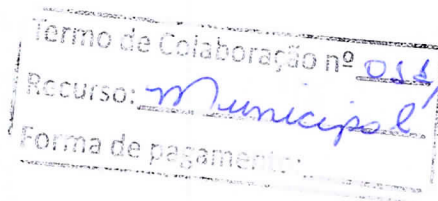 Termo de Colaboração nº 011/
Recurso: Municipal
Forma de pagamento: